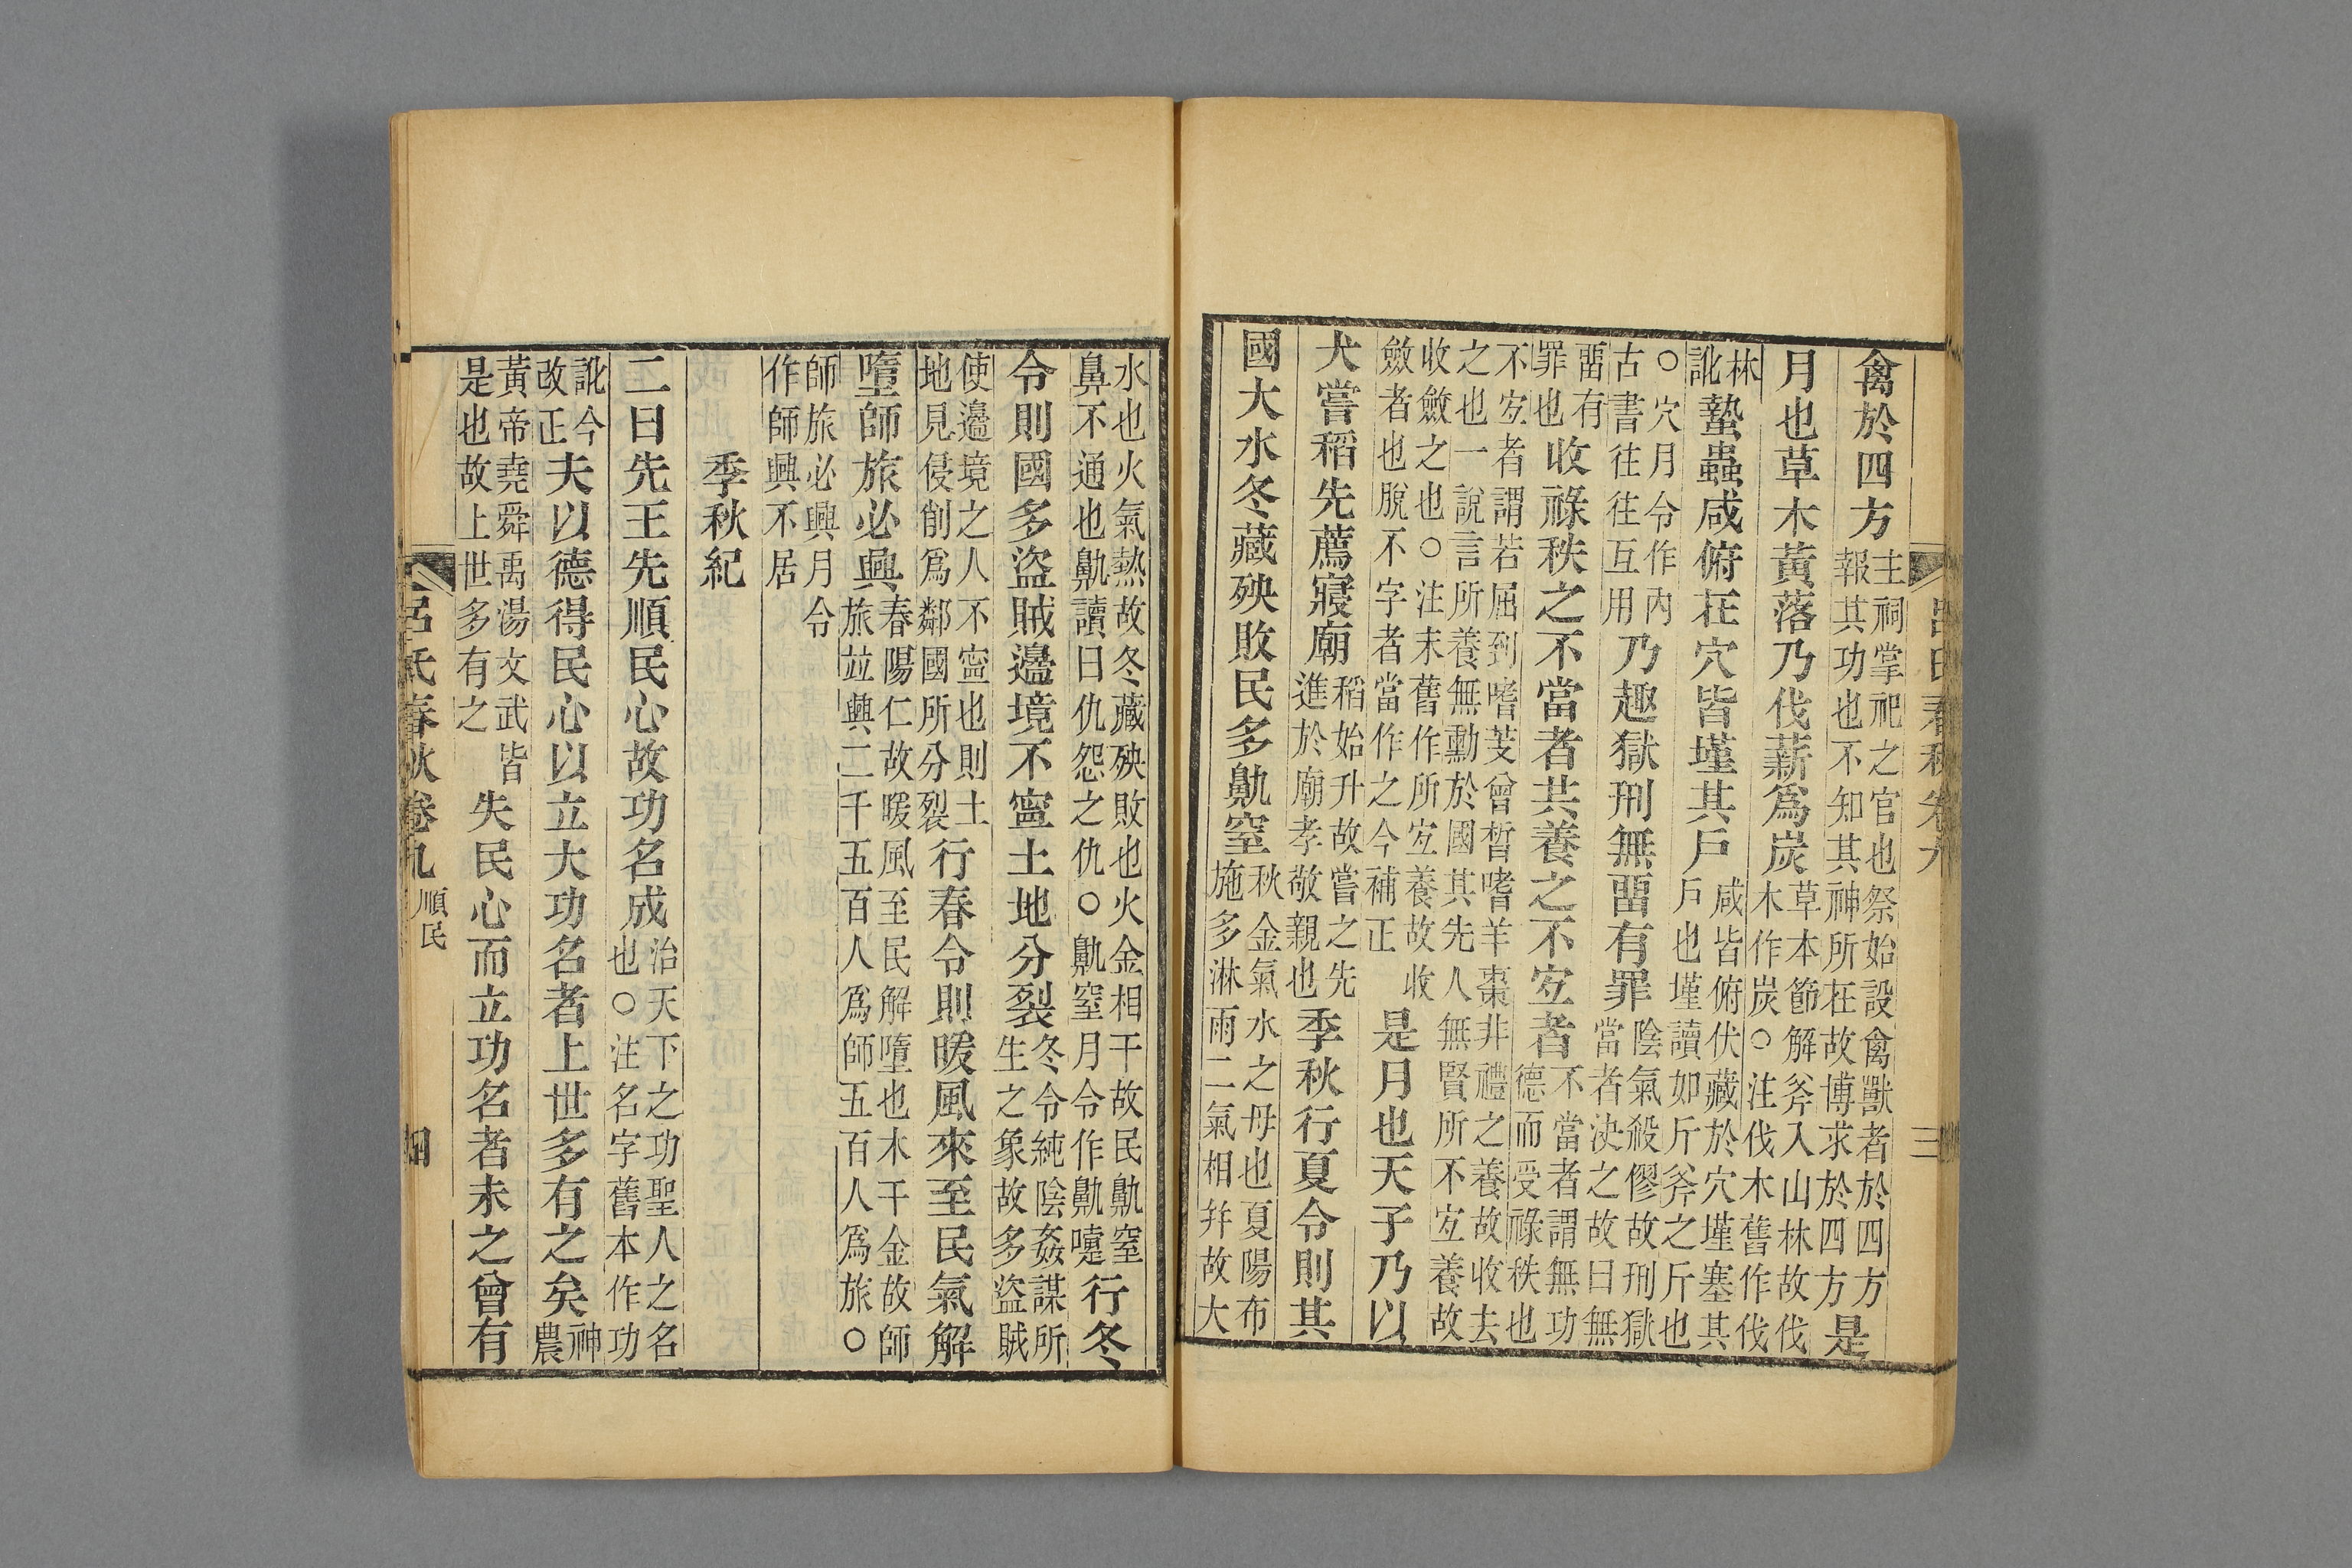 呂氏春秋卷九　三
禽於四方主祠掌祀之官也祭始設禽獸者於四方報其功也不知其神所在故博求於四方是
月也草木黃落乃伐薪爲炭草本節解斧入山林故伐木作炭○注伐木舊作伐
林訛蟄蟲咸俯在穴皆墐其戶咸皆俯伏藏於穴墐塞其戶也墐讀如斤斧之斤也
○穴月令作內古書往往互用乃趣獄刑無畱有罪陰氣殺僇故刑獄當者決之故曰無
畱有罪也收祿秩之不當者共養之不宐者不當者謂無功德而受祿秩也
不宐者謂若屈到嗜芰曾晳嗜羊棗非禮之養故收去之也一說言所養無勳於國其先人無賢所不宐養故
收斂之也○注末舊作所宐養故收斂者也脫不字者當作之今補正是月也天子乃以
犬嘗稻先薦寢廟稻始升故嘗之先進於廟孝敬親也季秋行夏令則其
國大水冬藏殃敗民多鼽窒秋金氣水之母也夏陽布施多淋雨二氣相幷故大
水也火氣熱故冬藏殃敗也火金相干故民鼽窒鼻不通也鼽讀曰仇怨之仇○鼽窒月令作鼽嚏行冬
令則國多盜賊邊境不寧土地分裂冬令純陰姦謀所生之象故多盜賊
使邊境之人不寧也則土地見侵削爲鄰國所分裂行春令則暖風來至民氣解
墮師旅必興春陽仁故暖風至民解墮也木干金故師旅竝興二千五百人爲師五百人爲旅○
師旅必興月令作師興不居
季秋紀
二曰先王先順民心故功名成治天下之功聖人之名也○注名字舊本作功
訛今改正夫以德得民心以立大功名者上世多有之矣神農
黃帝堯舜禹湯文武皆是也故上世多有之失民心而立功名者未之曾有
呂氏春秋卷九　順民　四